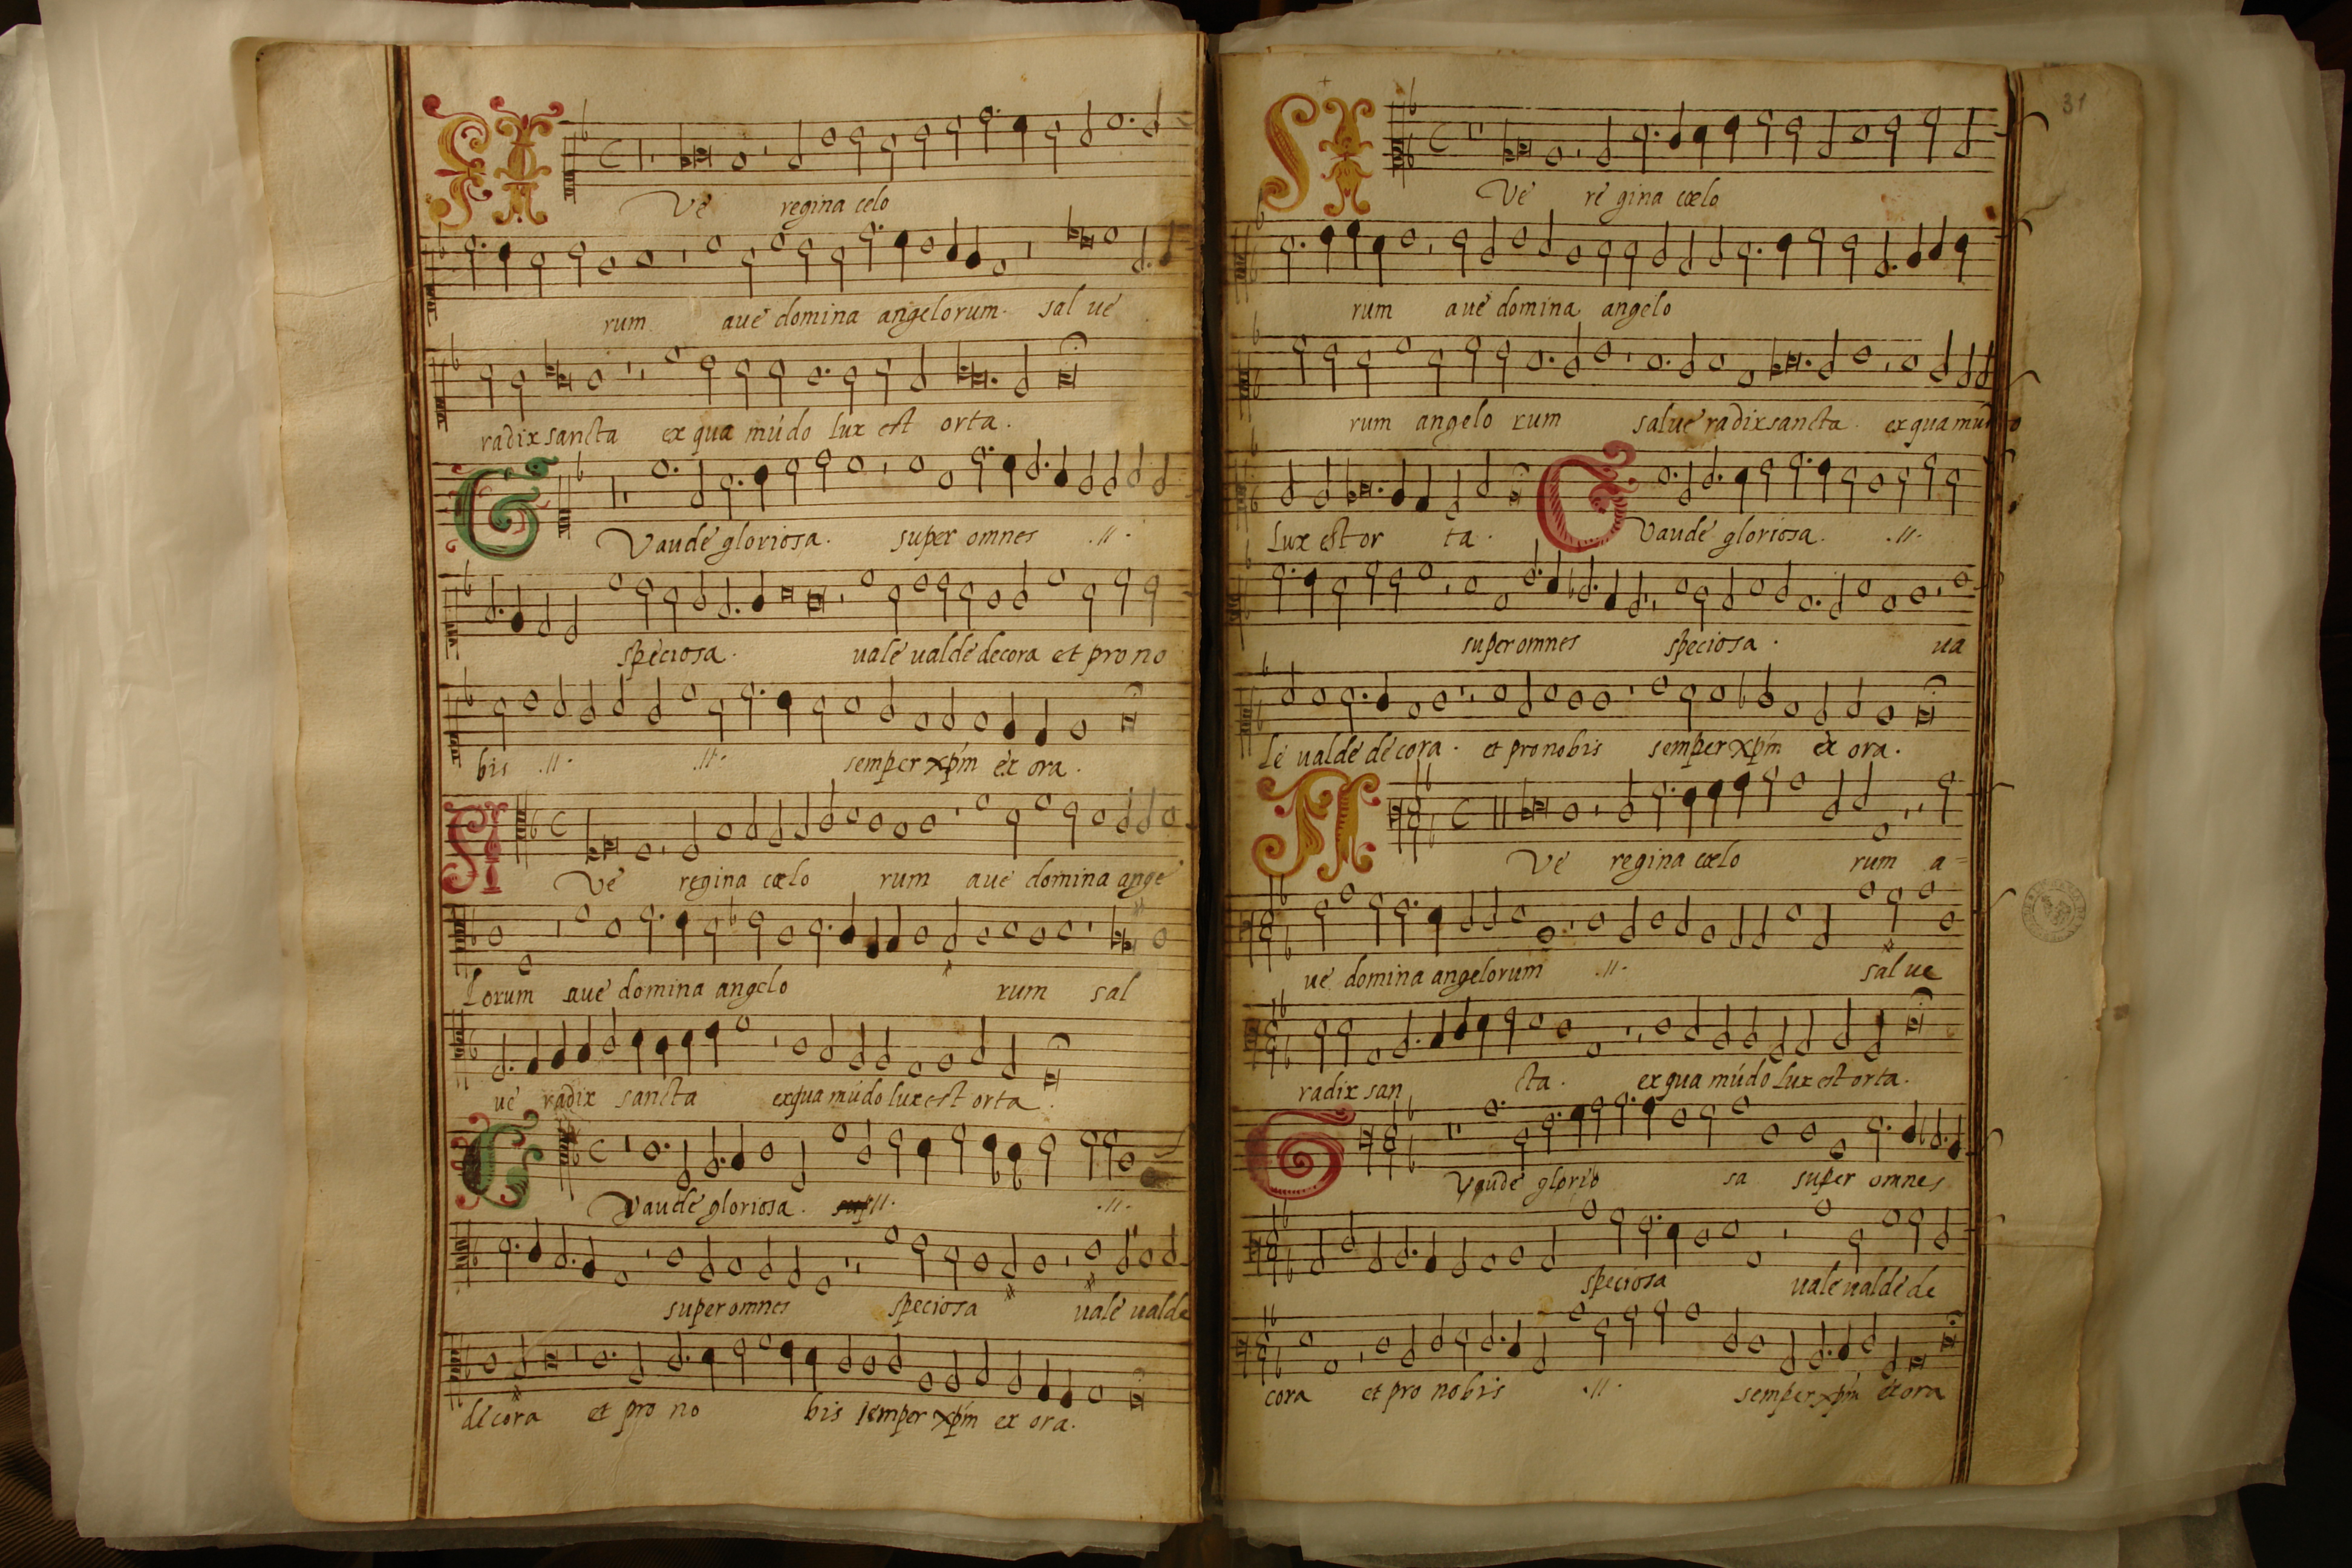 AVe regina celo
rum aue domina angelorum. sal ue
radix sancta ex qua múdo lux est orta.
GVaude gloriosa. super omnes .//.
speciosa. uale ualde decora et pro no
bis .//. .//. semper xp̄m ex ora.
AVe regina cœlo rum aue domina ange
lorum aue domina angelo rum sal
ue radix sancta ex qua múdo lux est orta.
GVaude gloriosa. .//. .//.
super omnes speciosa uale ualde
decora et pro no bis semper xp̄m ex ora.
31
AVe re gina cœlo
rum aue domina angelo
rum angelo rum salue radix sancta. ex qua múdo
lux est or ta. GVaude gloriosa. .//.
super omnes speciosa. ua
le ualde decora. et pro nobis semper xp̄m ex ora.
AVe regina cœlo rum a=
ue domina angelorum .//. sal ue
radix san cta. ex qua múdo lux est orta.
GVaude glorio sa super omnes
speciosa uale ualde de
cora et pro nobis .//. semper xp̄m ex ora